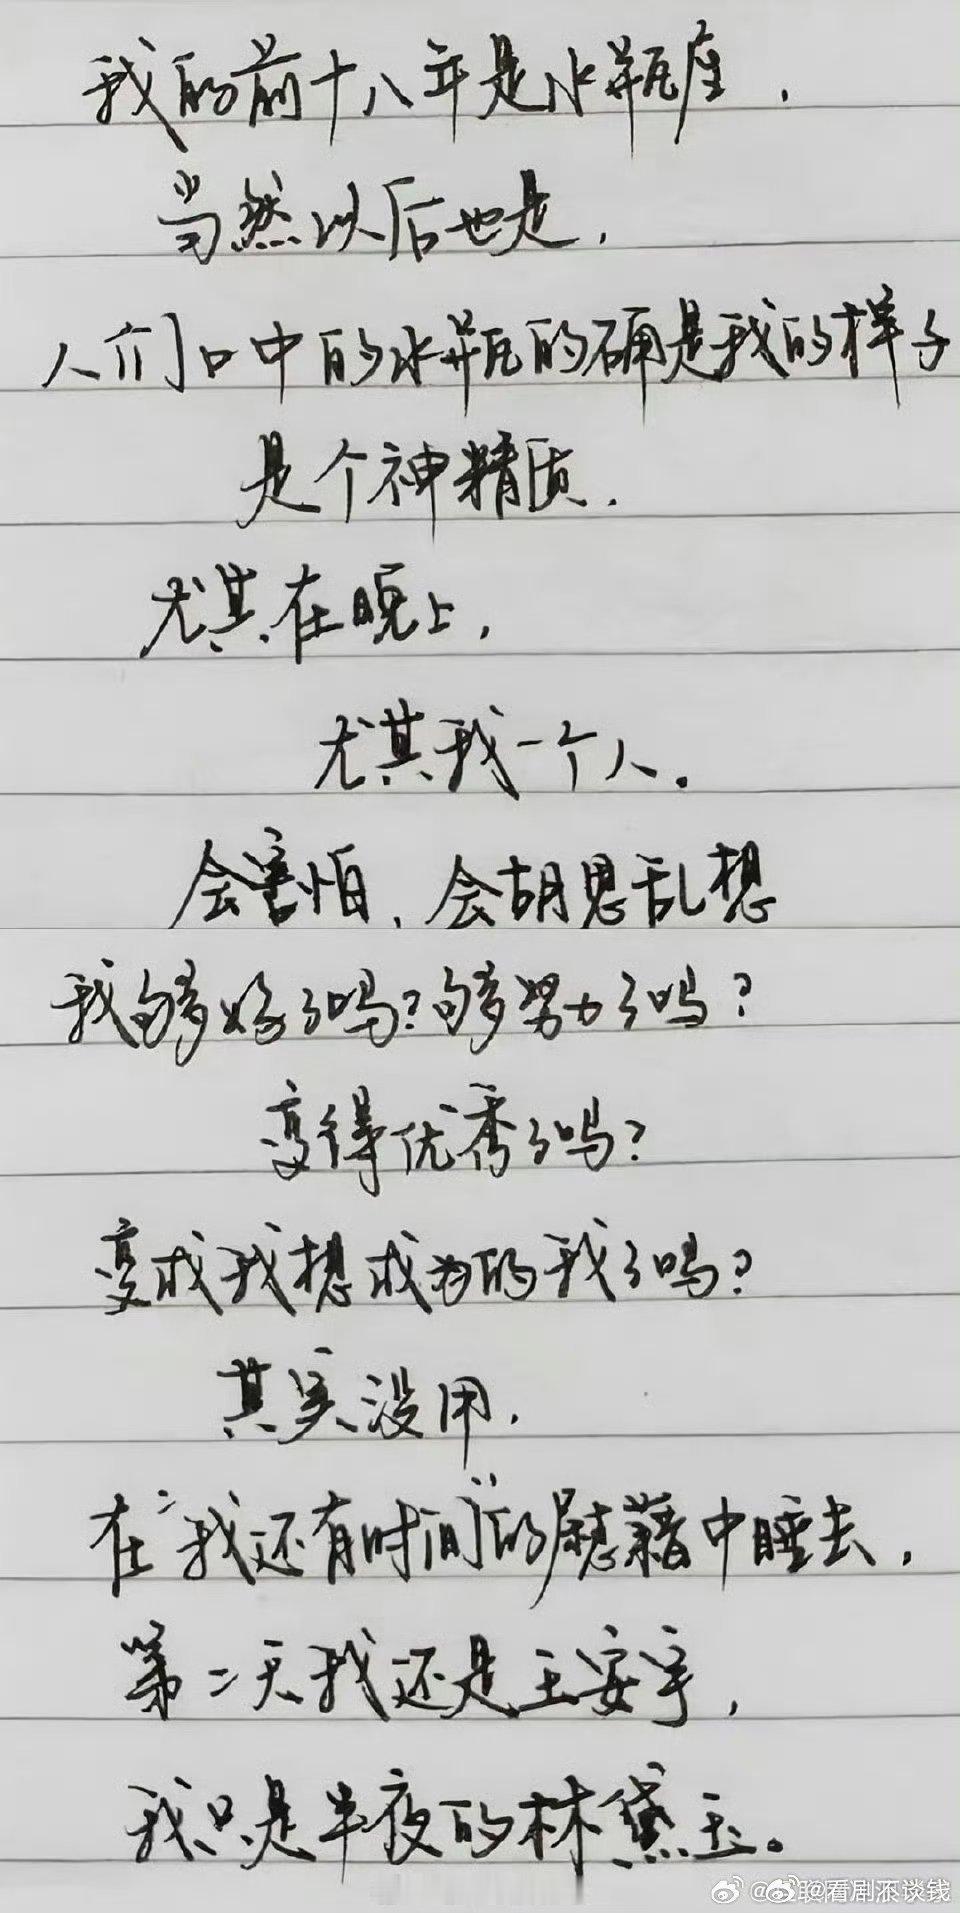 我的前十八年是水瓶座，
当然以后也是，
人们口中的水瓶的确是我的样子
是个神精质，
尤其在晚上，
尤其我一个人。
会害怕，会胡思乱想
我够好了吗？够努力了吗？
变得优秀了吗？
变成我想成为的我了吗？
其实没用，
在“我还有时间”的慰藉中睡去，
第二天我还是王安宇，
我只是半夜的林黛玉。
@看剧不谈钱